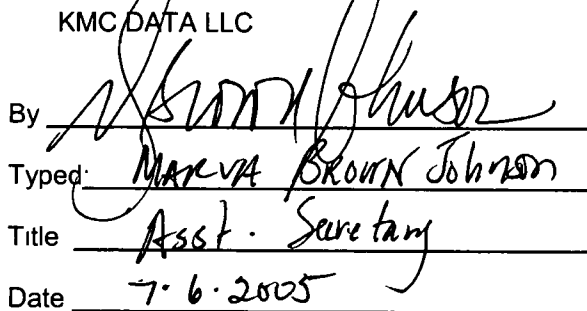 KMC DATA LLC
By M Brown Johnson
Typed: MARVA BROWN Johnson
Title Asst. Secretary
Date 7.6.2005